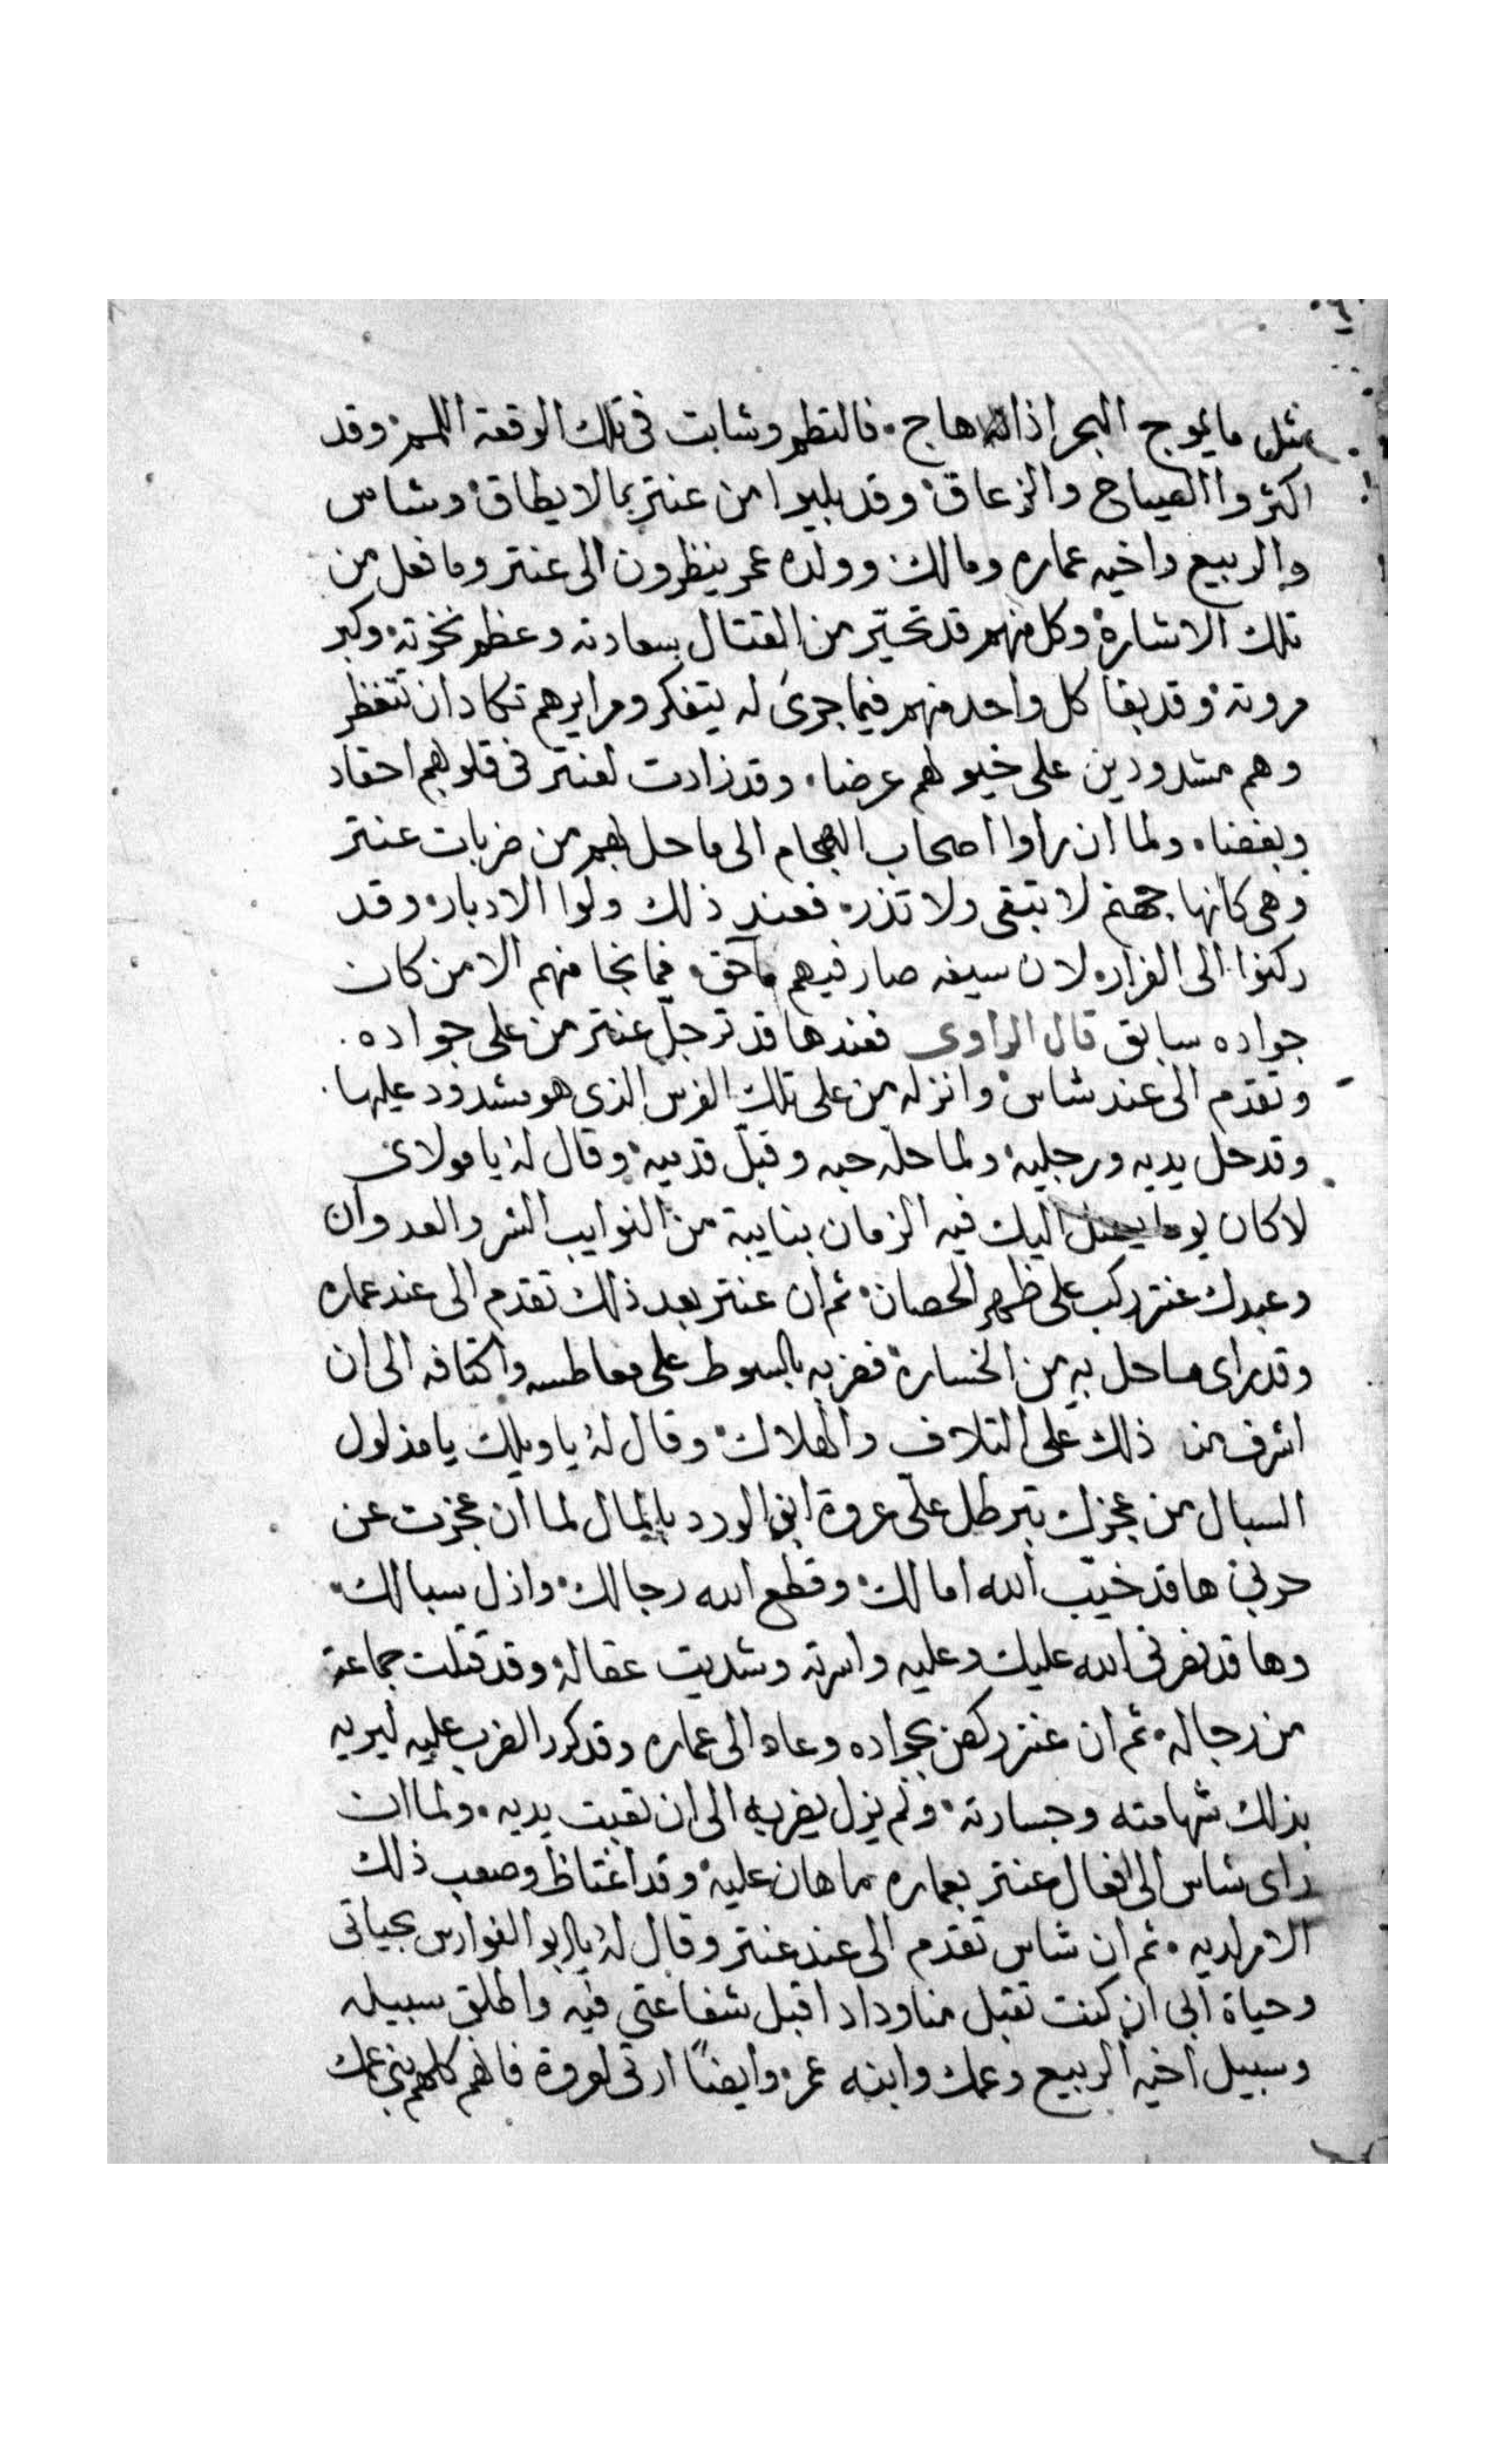 مثل ما يموج البحر اذا هاج. فالتطم وشابت في تلك الوقعة اللمم وقد
اكثروا الصياح والزعاق وقد بليوا من عنتر بما لا يطاق وشاس
والربيع واخيه عماره ومالك وولده عمر ينظرون الى عنتر وما فعل من
تلك الاشارة وكل منهم قد تحيّر من القتال بسعادته وعظم نخوته وكبر
مروته وقد بقا كل واحد منهم فيما جرى له يتفكر ومرايرهم تكاد ان تتفطر
وهم مشدودين على خيولهم عرضا. وقد زادت لعنتر في قلوبهم احقاد
وبغضا. ولما ان راوا اصحاب الهجام الى ما حل بهم من ضربات عنتر
وهي كانها جهنم لا تبقى ولا تذر. فعند ذلك ولوا الادبار وقد
ركنوا الى الفرار. لان سيفه صار فيهم ماحق. فما نجا منهم الا من كان
جواده سابق قال الراوى فعندها قد ترجل عنتر من على جواده.
وتقدم الى عند شاس وانزله من على تلك الفرس الذي هو مشدود عليها.
وقد حل يديه ورجليه ولما حله حبه وقبّل قدميه وقال له يا مولاى
لا كان يوما يصل اليك فيه الزمان بنايبة من النوايب الشر والعدوان
وعبدك عنتر ركب على ظهر الحصان ثم ان عنتر بعد ذلك تقدم الى عند عماره
وقد راى ما حل به من الخسارة فضربه بالسوط على معاطسه واكتافه الى ان
اشرف من ذلك على التلاف والهلاك وقال له يا ويلك يا مذلول
السبال من عجزك تبرطل على عروة ابن الورد بالمال لما ان عجزت عن
حربى ها قد خيّب الله امالك وقطع الله رجالك واذل سبالك
وها قد نصرنى الله عليك وعليه واسرته وشديت عقاله وقد قتلت جماعة
من رجاله. ثم ان عنتر ركض بجواده وعاد الى عماره وقد كرر الضرب عليه ليريه
بذلك شهامته وجسارته ولم يزل يضربه الى ان تعبت يديه. ولما ان
راى شاس الى افعال عنتر بعماره ما هان عليه وقد اغتاظ وصعب ذلك
الامر لديه. ثم ان شاس تقدم الى عند عنتر وقال له يا ابو الفوارس بحياتى
وحياة ابى ان كنت تقبل منا وداد اقبل شفاعتى فيه واطلق سبيله
وسبيل اخيه الربيع وعمك وابنه عمر وايضًا ارثى لعروة فانهم كلهم بنى عمك